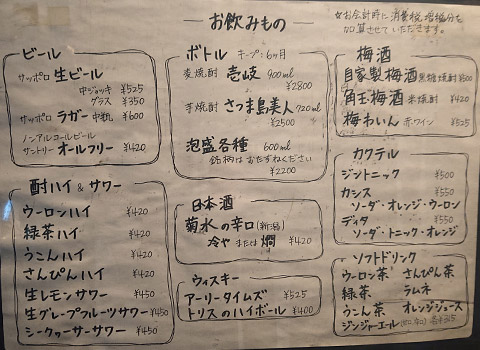 お飲みもの
☆お会計時に消費税増税分を
加算させていただきます。
ビール
サッポロ 生ビール
中ジョッキ ¥525
グラス ¥350
サッポロ ラガー 中瓶 ¥600
ノンアルコールビール
サントリー オールフリー ¥420
ボトル キープ:6ヶ月
麦焼酎 壱岐 900ml
¥2800
芋焼酎 さつま島美人 720ml
¥2500
泡盛各種 600ml
銘柄はおたずねください
¥2200
梅酒
自家製梅酒 黒糖焼酎 ¥500
角玉梅酒 米焼酎 ¥420
梅わいん 赤ワイン ¥525
カクテル
ジントニック ¥500
カシス ¥550
ソーダ・オレンジ・ウーロン
ディタ ¥550
ソーダ・トニック・オレンジ
酎ハイ & サワー
ウーロンハイ ¥420
緑茶ハイ ¥420
うこんハイ ¥420
さんぴんハイ ¥420
生レモンサワー ¥450
生グレープフルーツサワー ¥450
シークヮーサーサワー ¥450
日本酒
菊水の辛口(新潟)
冷や または 燗 ¥420
ウィスキー
アーリータイムズ ¥525
トリスのハイボール ¥400
ソフトドリンク
ウーロン茶 さんぴん茶
緑茶 ラムネ
うこん茶 オレンジジュース
ジンジャーエール